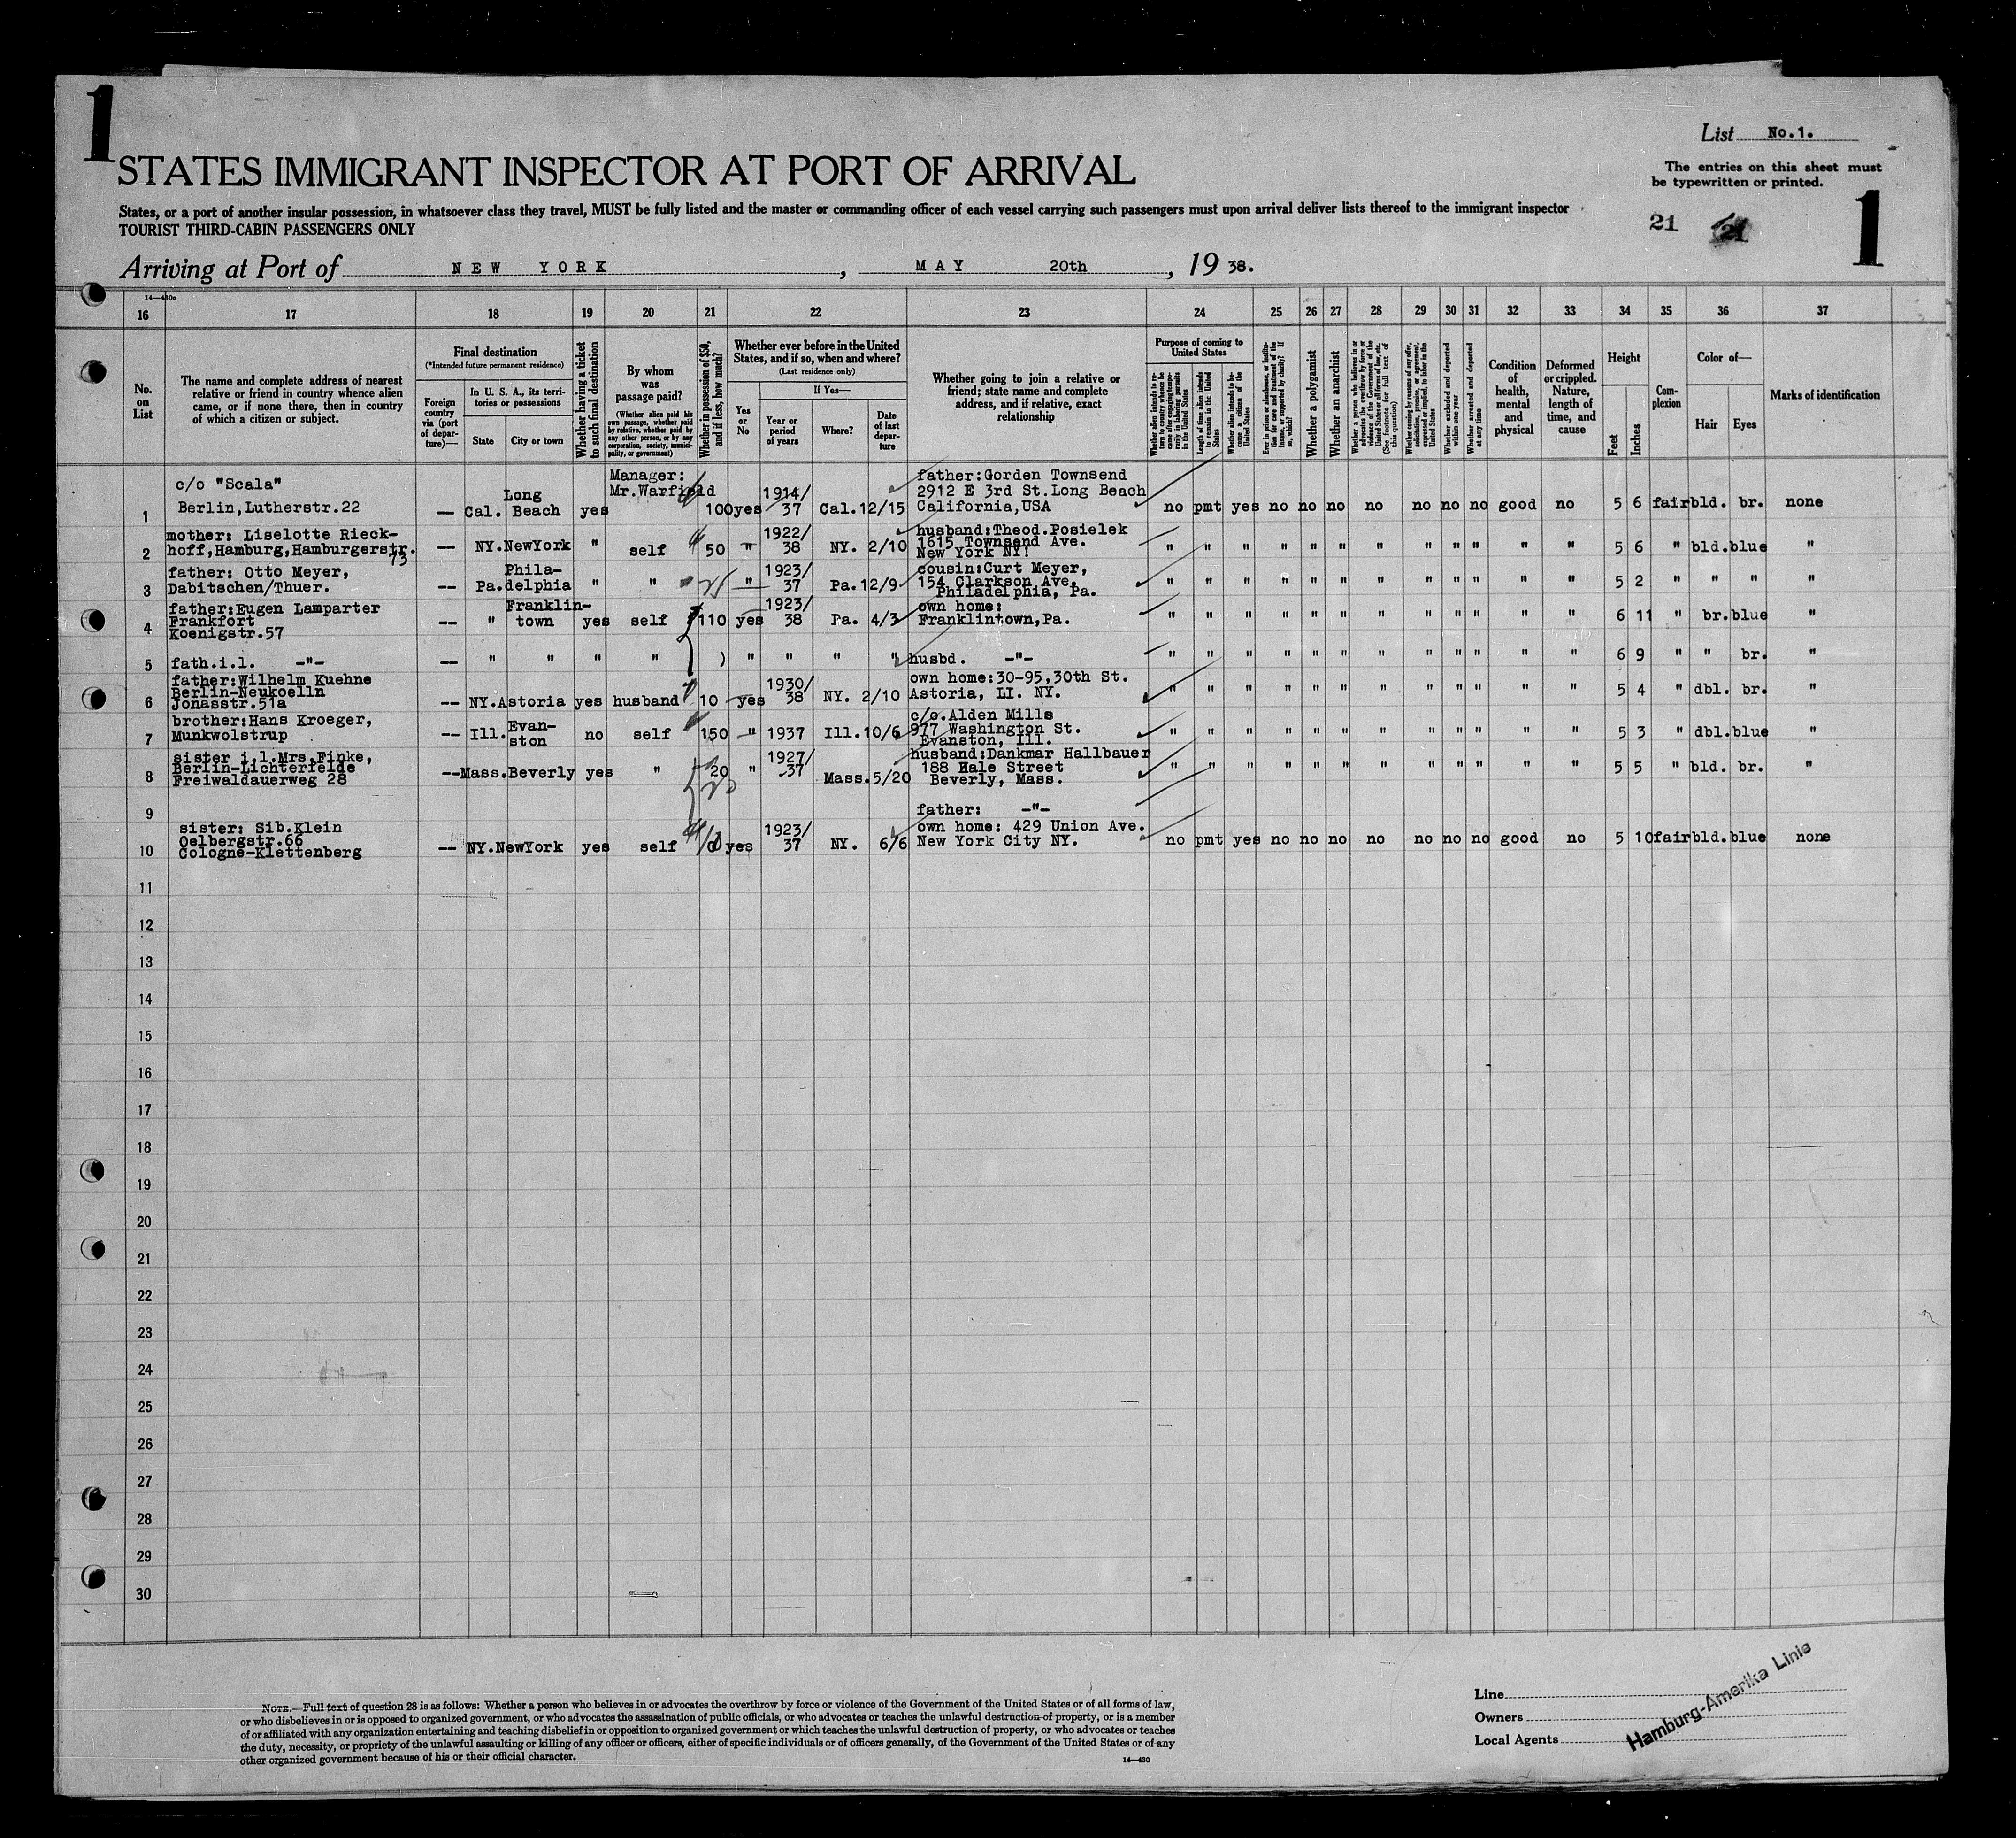 1
List No.1.
STATES IMMIGRANT INSPECTOR AT PORT OF ARRIVAL
The entries on this sheet must
be typewritten or printed.
States, or a port of another insular possession, in whatsoever class they travel, MUST be fully listed and the master or commanding officer of each vessel carrying such passengers must upon arrival deliver lists thereof to the immigrant inspector
TOURIST THIRD-CABIN PASSENGERS ONLY
21 21 1
Arriving at Port of NEW YORK, MAY 20th, 19 38.
16 17 18 19 20 21 22 23 24 25 26 27 28 29 30 31 32 33 34 35 36 37
No. on List
The name and complete address of nearest
relative or friend in country whence alien
came, or if none there, then in country
of which a citizen or subject.
Final destination
(*Intended future permanent residence)
Foreign country via (port of departure)—
In U. S. A., its territories or possessions
State
City or town
Whether having a ticket to such final destination
By whom was passage paid?
(Whether alien paid his own passage, whether paid by relative, whether paid by any other person, or by any corporation, society, municipality, or government)
Whether in possession of $50, and if less, how much?
Whether ever before in the United
States, and if so, when and where?
(Last residence only)
Yes or No
If Yes—
Year or period of years
Where?
Date of last departure
Whether going to join a relative or
friend; state name and complete
address, and if relative, exact
relationship
Purpose of coming to United States
Length of time alien intends to remain in the United States
Whether alien intends to become a citizen of the United States
Whether a polygamist
Whether an anarchist
Whether excluded and deported within one year
Whether arrested and deported at any time
Condition of health, mental and physical
Deformed or crippled. Nature, length of time, and cause
Height
Feet
Inches
Complexion
Color of—
Hair
Eyes
Marks of identification
c/o "Scala"
Berlin,Lutherstr.22
1 -- Cal. Long Beach yes Manager: Mr.Warfield 100 yes 1914/37 Cal. 12/15 father:Gorden Townsend
2912 E 3rd St.Long Beach
California,USA
no pmt yes no no no no no no no good no 5 6 fair bld. br. none
mother: Liselotte Rieck-
hoff,Hamburg,Hamburgerstr.
73
2 -- NY. NewYork " self 50 " 1922/38 NY. 2/10 husband:Theod.Posielek
1615 Townsend Ave.
New York NY!
" " " " " " " " " " " " 5 6 " bld. blue "
father: Otto Meyer,
Dabitschen/Thuer.
3 -- Pa. Phila-delphia " " 25 " 1923/37 Pa. 12/9 cousin:Curt Meyer,
154 Clarkson Ave,
Philadelphia, Pa.
" " " " " " " " " " " " 5 2 " " " "
father:Eugen Lamparter
Frankfort
Koenigstr.57
4 -- " Franklin-town yes self 110 yes 1923/38 Pa. 4/3 own home:
Franklintown,Pa.
" " " " " " " " " " " " 6 11 " br. blue "
5 fath.i.l. -"- -- " " " " " " " " husbd. -"-
" " " " " " " " " " " " 6 9 " " br. "
father:Wilhelm Kuehne
Berlin-Neukoelln
Jonasstr.51a
6 -- NY. Astoria yes husband 10 yes 1930/38 NY. 2/10 own home:30-95,30th St.
Astoria, LI. NY.
" " " " " " " " " " " " 5 4 " dbl. br. "
brother:Hans Kroeger,
Munkwolstrup
7 -- Ill. Evan-ston no self 150 " 1937 Ill. 10/6 c/o.Alden Mills
977 Washington St.
Evanston, Ill.
" " " " " " " " " " " " 5 3 " dbl. blue "
sister i.l.Mrs.Finke,
Berlin-Lichterfelde
Freiwaldauerweg 28
8 -- Mass. Beverly yes " 20 " 1927/37 Mass. 5/20 husband:Dankmar Hallbauer
188 Hale Street
Beverly, Mass.
" " " " " " " " " " " " 5 5 " bld. br. "
9 father: -"-
sister: Sib.Klein
Oelbergstr.66
Cologne-Klettenberg
10 -- NY. NewYork yes self yes 1923/37 NY. 6/6 own home: 429 Union Ave.
New York City NY.
no pmt yes no no no no no no no good no 5 10 fair bld. blue none
11
12
13
14
15
16
17
18
19
20
21
22
23
24
25
26
27
28
29
30
NOTE.—Full text of question 28 is as follows: Whether a person who believes in or advocates the overthrow by force or violence of the Government of the United States or of all forms of law,
or who disbelieves in or is opposed to organized government, or who advocates the assassination of public officials, or who advocates or teaches the unlawful destruction of property, or is a member
of or affiliated with any organization entertaining and teaching disbelief in or opposition to organized government or which teaches the unlawful destruction of property, or who advocates or teaches
the duty, necessity, or propriety of the unlawful assaulting or killing of any officer or officers, either of specific individuals or of officers generally, of the Government of the United States or of any
other organized government because of his or their official character.
14—430
Line
Owners
Local Agents
Hamburg-Amerika Linie